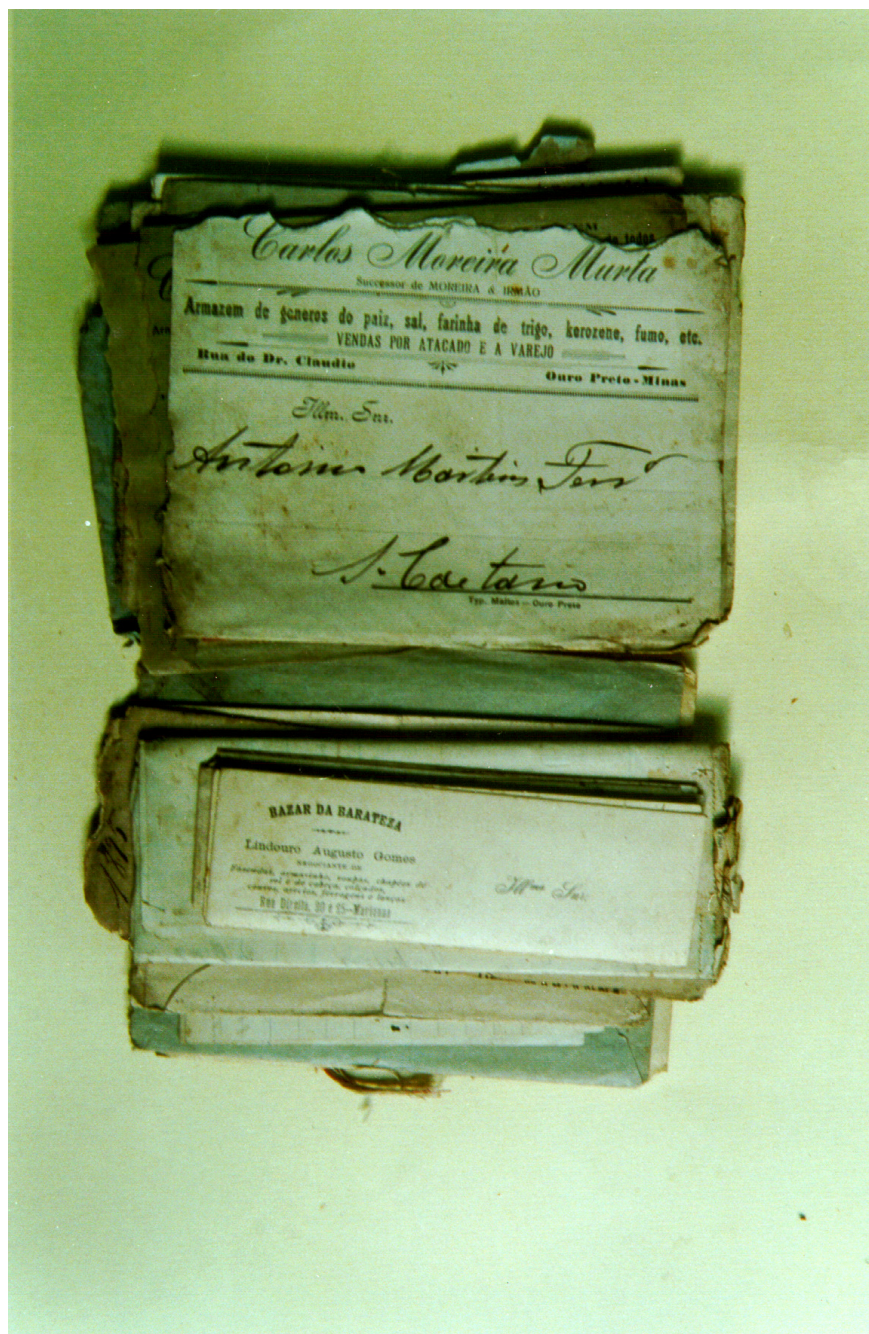 de todos
Carlos Moreira Murta
Successor de MOREIRA & IRMÃO
Armazem de generos do paiz, sal, farinha de trigo, kerozene, fumo, etc.
VENDAS POR ATACADO E A VAREJO
Rua do Dr. Claudio
Ouro Preto-Minas
Illm. Snr.
Antonio Martins Ferrª
S. Caetano
Typ. Mattos — Ouro Preto
BAZAR DA BARATEZA
Lindouro Augusto Gomes
NEGOCIANTE DE
Fazendas, armarinho, roupas, chapéos de
sol e de cabeça, calçados,
ferragens e louças
Rua Direita, 30 e 25—Marianna
Illmo Snr.